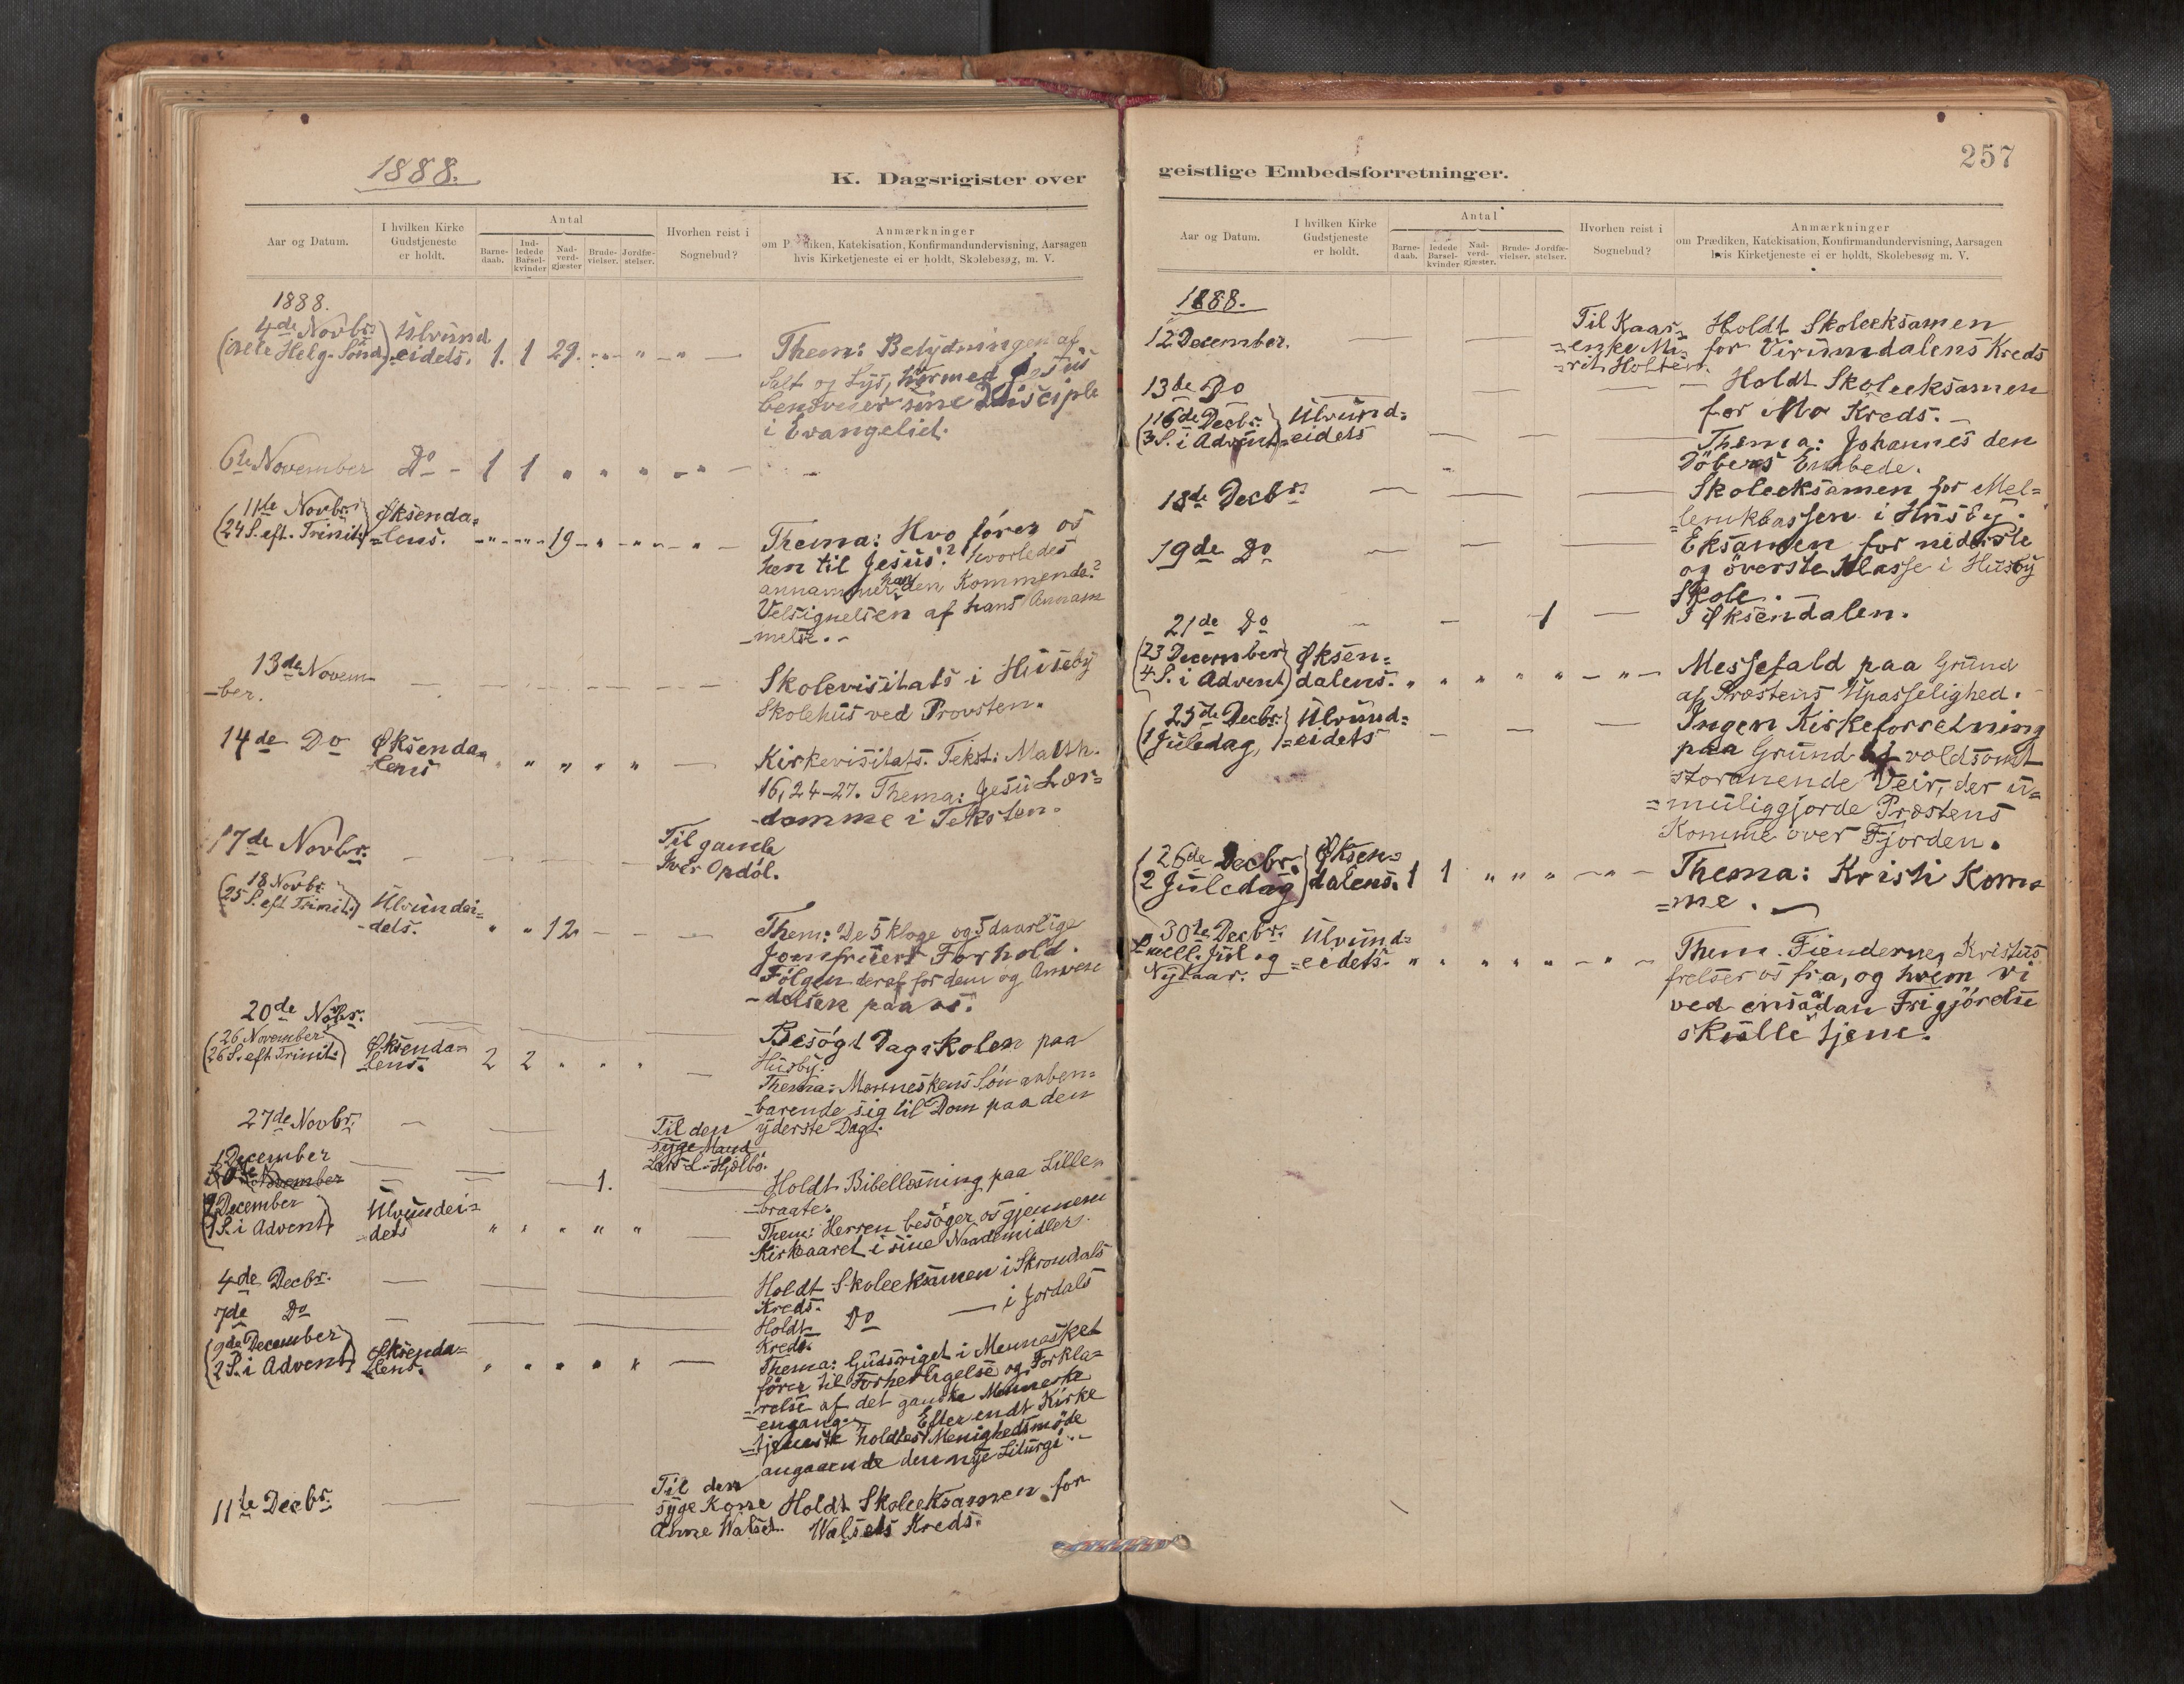 1888.
K. Dagsrigister over
Aar og Datum.
I hvilken Kirke
Gudstjeneste
er holdt.
Antal
Barne-
daab.
Ind-
ledede
Barsel-
kvinder
Nad-
verd-
gjæster
Brude-
vielser.
Jordfæ-
stelser.
Hvorhen reist i
Sognebud?
Anmærkninger
om Prædiken, Katekisation, Konfirmandundervisning, Aarsagen
hvis Kirketjeneste ei er holdt, Skolebesøg, m. V.
1888.
4de Novbr. Ulvund
Helg. Sønd. eidets. 1. 1 29. Them: Betydningen af
Salt og Lys, hvormed Jesus
benævner sine Disciple
i Evangeliet.
6te November Do - 1 1 " " " - " -
11te Novbr. Øksenda=
(24 S. eft. Trinit.) =lens. 19 Thema: Hvo fører os
hen til Jesus? hvorledes
annammer han den Kommende?
Velsignelsen af hans Annam
melse. -
13de Novem-
-ber. Skolevisitats i Huseby
Skolehus ved Provsten.
14de Do Øksenda=
-lens " " " " " Kirkevisitats. Tekst: Matth.
16, 24-27. Thema: Jesu Lær=
-domme i Teksten.
17de Novbr. Til gamle
Iver Opdøl.
18 Novbr.
(25 S. eft Trinit.) Ulvundei=
-dets. " " 12 Them: De 5 kloge og 5 daarlige
Jomfruers Forhold.
Følgen deraf for dem og Anven
-delsen paa os.
20de Novbr. Besøgt Dagskolen paa
Husby.
(26 November
26 S. eft Trinit.) Øksenda=
-lens. 2 2 " " " Thema: Menneskens Søn aaben=
-barende sig til Dom paa den
yderste Dag.
27de Novbr. Til den
syge Mand
Lars L. Hjølbø.
1 December
1. Holdt Bibellæsning paa Lille=
-braate.
2 December
1 S. i Advent Ulvundei=
-dets " " " " " Them: Herren besøger os gjennem
Kirkeaaret i sine Naademidler.
4de Decbr. Holdt Skoleeksamen i Skrondals
Kreds.
7de Do Holdt Do i Jordals
Kreds.
(9de December
2 S. i Advent) Øksenda=
-lens. " " " " " Thema: Gudsriget i Mennesket
fører til Forherligelse og Forkla=
=relse af det ganske Menneske
engang. Efter endt Kirke
-tjeneste holdtes Menighedsmøde
angaaende den nye Liturgi.
11te Decbr. Til den
syge Kone
Anne Walset. Holdt Skoleeksamen for
Walsets Kreds.
257
geistlige Embedsforretninger.
Aar og Datum.
I hvilken Kirke
Gudstjeneste
er holdt.
Antal
Barne-
daab.
ledede
Barsel-
kvinder
Nad-
verd-
gjæster.
Brude-
vielser.
Jordfæ-
stelser.
Hvorhen reist i
Sognebud?
Anmærkninger
om Prædiken, Katekisation, Konfirmandundervisning, Aarsagen
hvis Kirketjeneste ei er holdt, Skolebesøg m. V.
1888.
12 December. Til Kaar=
=enke Ma=
=rit Holten. Holdt Skoleeksamen
for Virumdalens Kreds
13de Do Holdt Skoleeksamen
for Mo Kreds. -
(16de Decbr. Ulvund=
3 S. i Advent) =eidets Thema: Johannes den
Döbers Embede.
18de Decbr. Skoleeksamen for Mel=
=lemklassen i Husby.
19de Do Eksamen for nederste
og överste Klasse i Husby
Skole. -
21de Do 1 I Øksendalen.
(23 December Øksen=
4 S. i Advent) dalens. " " " " " Messefald paa Grund
af Præstens Upasselighed.
(25de Decbr. Ulvund=
1 Juledag, =eidets Ingen Kirkeforretning
paa Grund af voldsomt
stormende Veir, der u=
=muliggjorde Præstens
Komme over Fjorden.
(26de Decbr. Øksen=
2 Juledag) dalens. 1 1 " " " Thema: Kristi Kom=
=me.
30te Decbr. Ulvund=
S. mell. Jul og =eidets. " " " " "
Nytaar. Them. Fienderne, Kristus
frelser os fra, og hvem vi
ved en saadan Frigjörelse
skulle tjene.